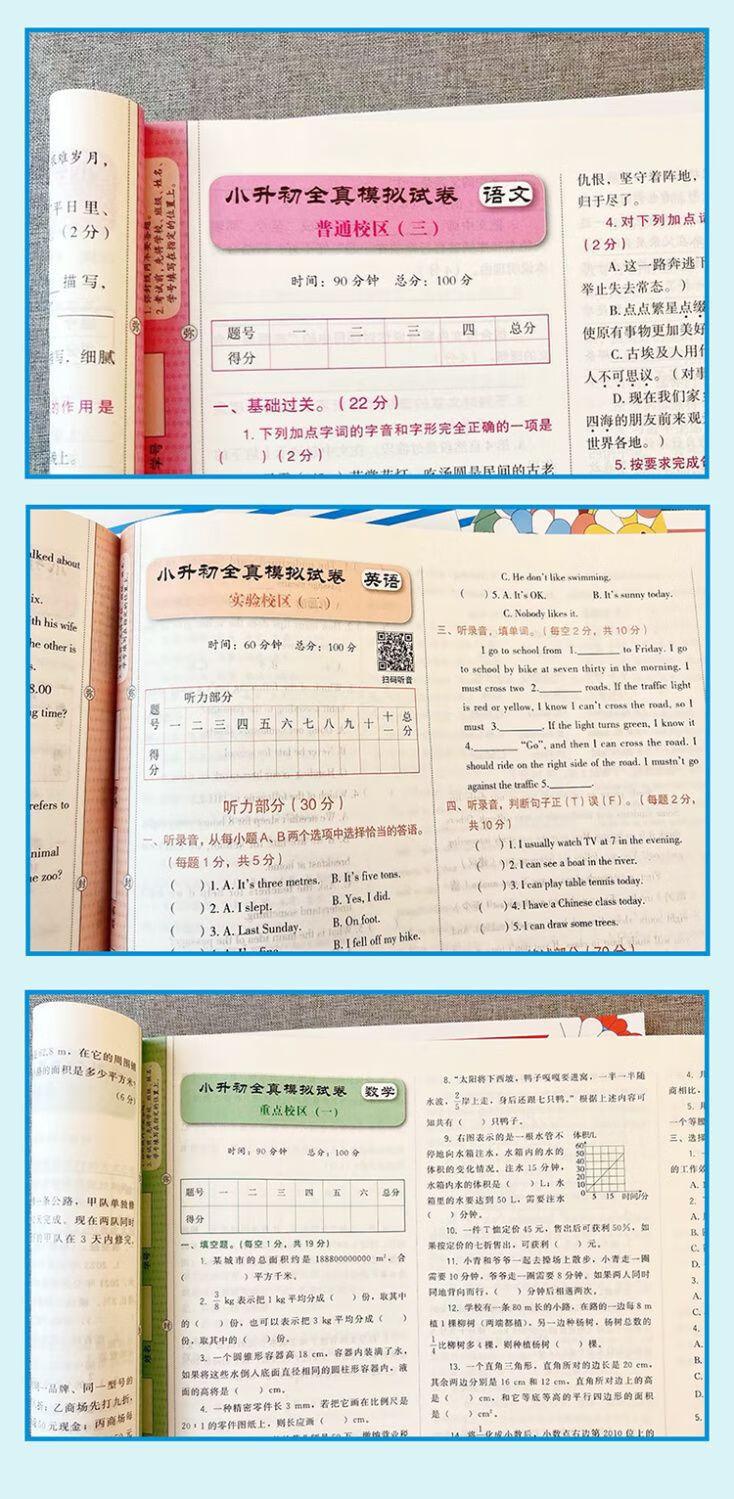 难岁月，
平日里、
（2分）
描写，
写．细腻
的作用是
线上。
1. 弥封线内不要答题。
2. 考试前，先将学校、班级、姓名、
学号填写在指定的位置上。
弥
学号
小升初全真模拟试卷 语文
普通校区（三）
时间：90分钟 总分：100分
题号 一 二 三 四 总分
得分
一、基础过关。（22分）
1. 下列加点字词的字音和字形完全正确的一项是
（ ）（2分）
吃汤圆是民间的古老
仇恨，坚守着阵地，
归于尽了。
4. 对下列加点词
（2分）
A. 这一路奔逃下
举止失去常态。）
B. 点点繁星点缀
使原有事物更加美好
C. 古埃及人用什
人不可思议。（对事
D. 现在我们家
四海的朋友前来观
世界各地。）
5. 按要求完成句
alked about
ix.
th his wife
he other is
s.
8.00
ng time?
refers to
nimal
he zoo?
弥
封
小升初全真模拟试卷 英语
实验校区（二）
时间：60分钟 总分：100分
扫码听音
题号 听力部分
一 二 三 四 五 六 七 八 九 十 十一 总分
得分
听力部分（30分）
一、听录音，从每小题A、B两个选项中选择恰当的答语。
（每题1分，共5分）
（ ）1. A. It's three metres. B. It's five tons.
（ ）2. A. I slept. B. Yes, I did.
（ ）3. A. Last Sunday. B. On foot.
B. I fell off my bike.
C. He don't like swimming.
（ ）5. A. It's OK. B. It's sunny today.
C. Nobody likes it.
三、听录音，填单词。（每空2分，共10分）
I go to school from 1.________ to Friday. I go
to school by bike at seven thirty in the morning. I
must cross two 2.________ roads. If the traffic light
is red or yellow, I know I can't cross the road, so I
must 3.________. If the light turns green, I know it
4.________ “Go”, and then I can cross the road. I
should ride on the right side of the road. I mustn't go
against the traffic 5.________.
四、听录音，判断句子正（T）误（F）。（每题2分，
共10分）
（ ）1. I usually watch TV at 7 in the evening.
（ ）2. I can see a boat in the river.
（ ）3. I can play table tennis today.
（ ）4. I have a Chinese class today.
（ ）5. I can draw some trees.
62.8 m，在它的周围铺
小路的面积是多少平方米？
（6分）
一条公路，甲队单独修
天完成。现在两队同时
甲队在3天内修完，
同一品牌、同一型号的
折；乙商场先打九折，
50元现金；丙商场每
学号
姓名
小升初全真模拟试卷 数学
重点校区（一）
时间：90分钟 总分：100分
题号 一 二 三 四 五 六 总分
得分
一、填空题。（每空1分，共19分）
1. 某城市的总面积约是188800000000 m²，合
（ ）平方千米。
2. 3/8 kg表示把1 kg平均分成（ ）份，取其中
的（ ）份，也可以表示把3 kg平均分成（ ）
份，取其中的（ ）份。
3. 一个圆锥形容器高18 cm，容器内装满了水，
如果将这些水倒入底面直径相同的圆柱形容器内，液
面的高将是（ ）cm。
4. 一种精密零件长3 mm，若把它画在比例尺是
20∶1的零件图纸上，则长应画（ ）cm。
8. “太阳将下西坡，鸭子嘎嘎要进窝，一半一半随
水波，2/5岸上走，身后还跟七只鸭。”根据上述内容可
知共有（ ）只鸭子。
9. 右图表示的是一根水管不
停地向水箱注水，水箱内的水的
体积的变化情况。注水15分钟，
水箱内水的体积是（ ）L；水
箱里的水要达到50 L，需要注水
（ ）分钟。
体积/L
60
50
40
30
20
10
0 5 15 时间/分
10. 一件T恤定价45元，售出后可获利50%，如
果按定价的七折售出，可获利（ ）元。
11. 小青和爷爷一起去操场上散步，小青走一圈
需要10分钟，爷爷走一圈需要8分钟。如果两人同时
同地背向而行，（ ）分钟后相遇两次。
12. 学校有一条80 m长的小路，在路的一边每8 m
植1棵柳树（两端都植）。另一边种杨树，杨树总数的
1/4比柳树多4棵，则种植杨树（ ）棵。
13. 一个直角三角形，直角所对的边长是20 cm，
其余两边分别是16 cm和12 cm，直角所对边上的高
是（ ）cm，和它等底等高的平行四边形的面积
是（ ）cm²。
化成小数后，小数点右边第2010位上的
4.
商相比，
5.
一个等腰
三、选择
1.
的工作效
A.
2.
A.
B.
C.
D.
3.
A.
C.
4.
A.
B.
C.
D.
5.